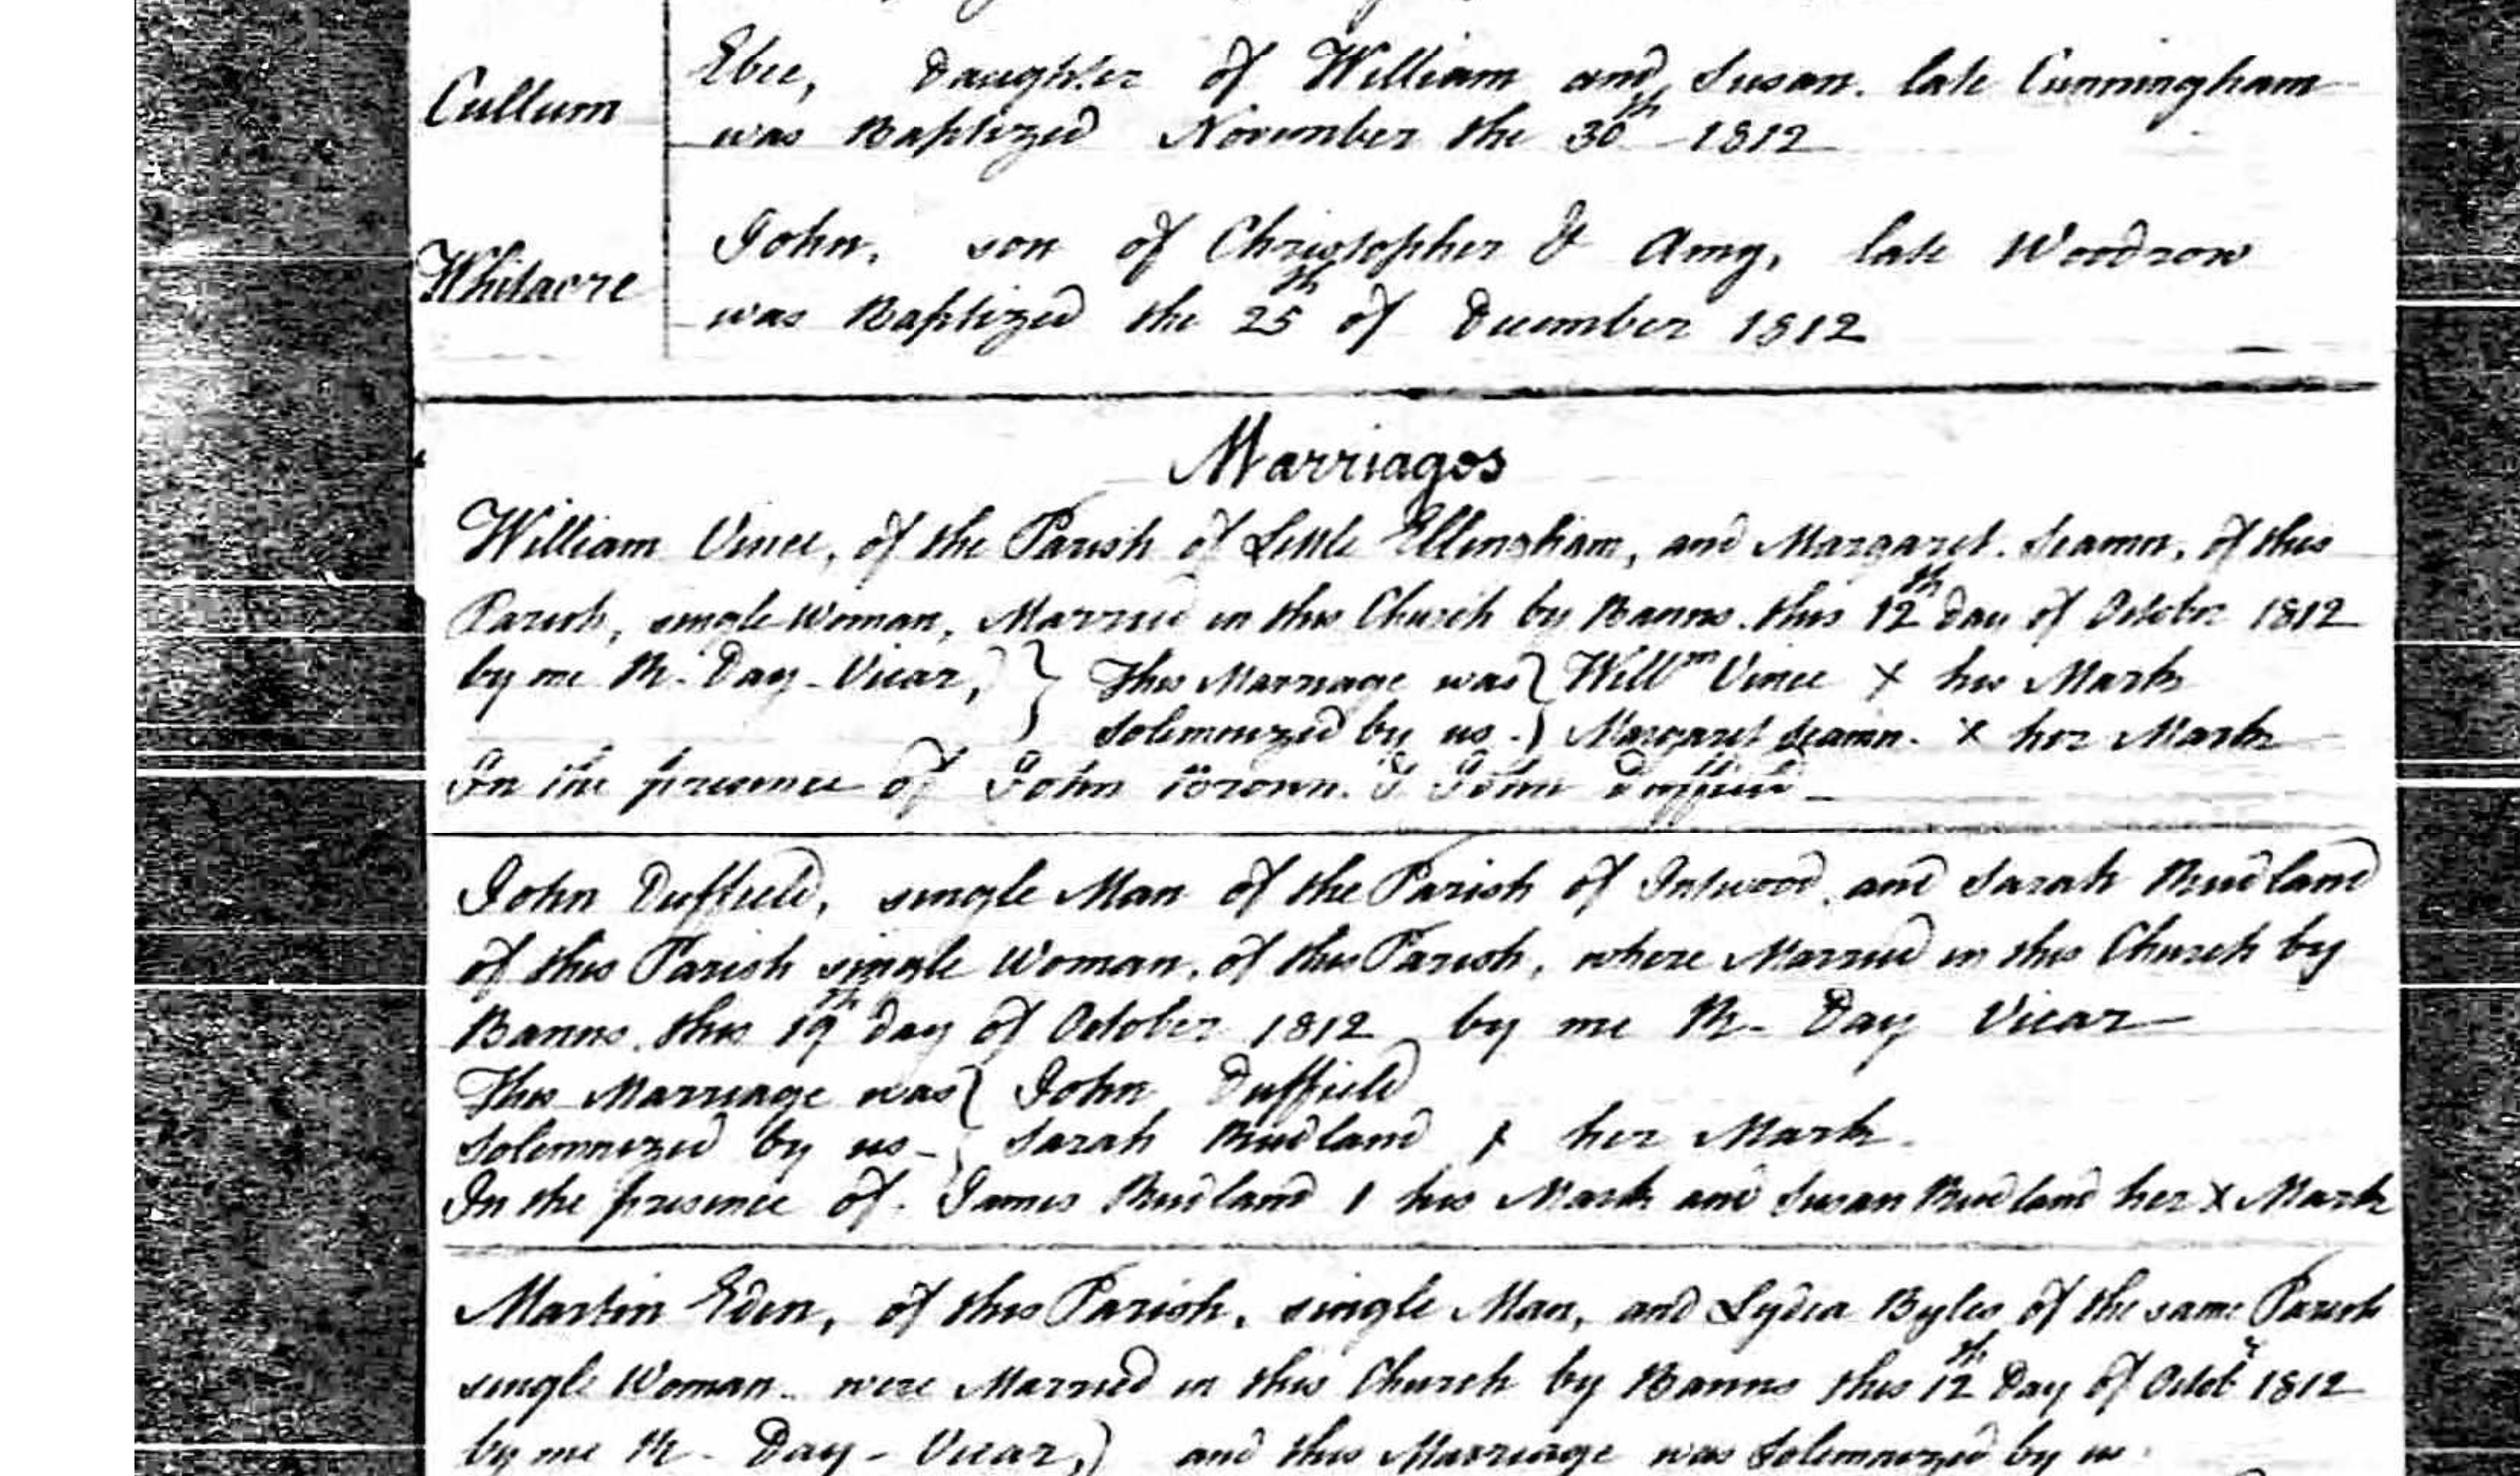 Cullum
Ebee, Daughter of William and Susan. late Cunningham
was Baptized November the 30th 1812
Whitacre
John, son of Christopher & Amy, late Woodrow
was Baptized the 25th of December 1812
Marriages
William Vince, of the Parish of Little Ellingham, and Margaret Seamn, of this
Parish, single Woman, Married in this Church by Banns this 12th Day of October 1812
by me R. Day - Vicar, } This Marriage was } Willm Vince X his Mark
Solemnized by us. } Margaret Seamn. X her Mark
In the presence of John Brown. & John Duffield
John Duffield, single Man of the Parish of Intwood, and Sarah Rudland
of this Parish single Woman, of this Parish, where Married in this Church by
Banns, this 19th Day of October 1812 by me R. Day Vicar
This Marriage was } John Duffield
Solemnized by us - } Sarah Rudland X her Mark.
In the presence of. James Rudland I his Mark and Susan Rudland her X Mark
Martin Eden, of this Parish, single Man, and Lydia Byles of the same Parish
single Woman. were Married in this Church by Banns this 12th Day of Octobr 1812
by me R - Day - Vicar,) and this Marriage was Solemnized by us